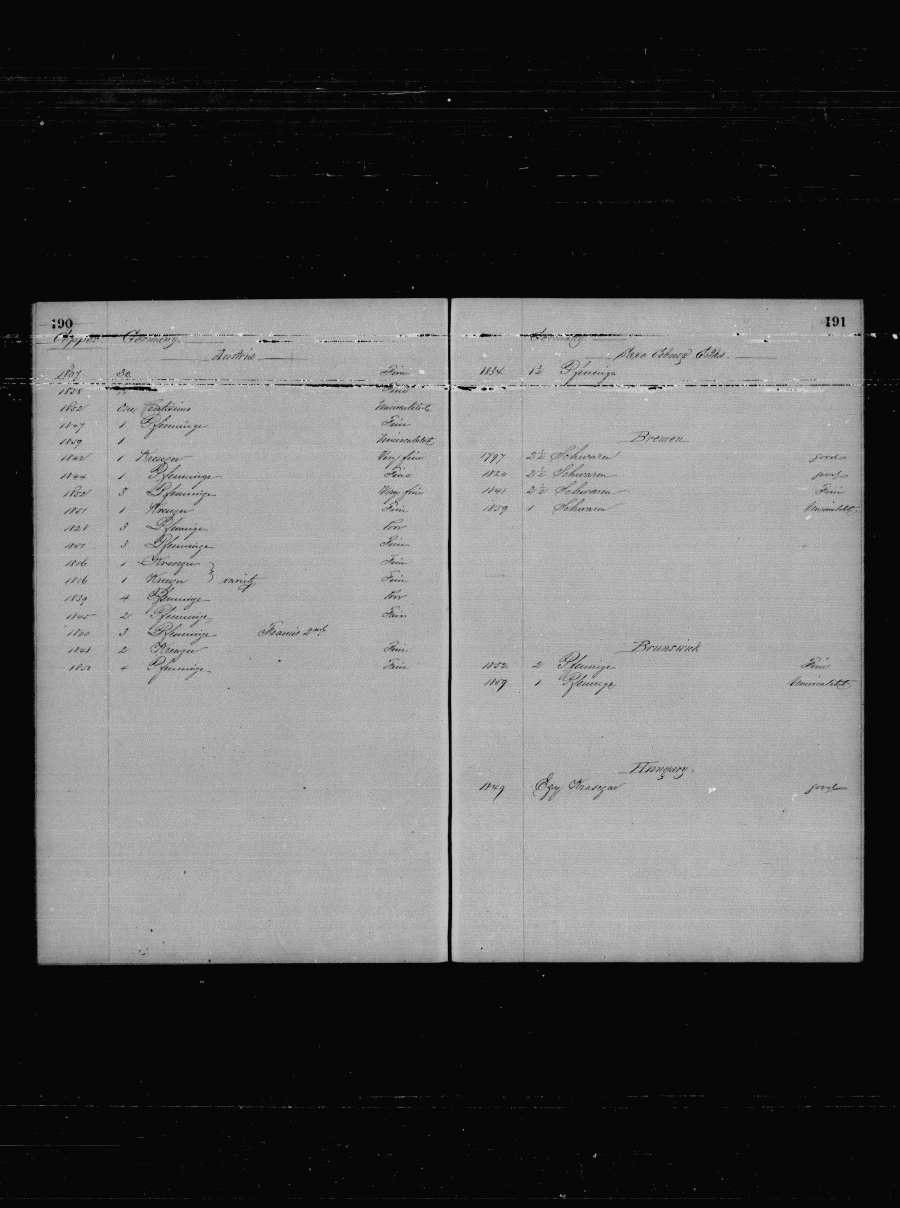 190
Copper Germany
Austria
1807 30 Fine
1858 Fine
1852 Centesimi Uncirculated
1847 1 Pfenninge Fine
1859 1 Uncirculated
1842 1 Kreuzer Very fine
1844 1 Pfenninge Fine
1852 3 Pfenninge Very fine
1851 1 Kreuzer Fine
1828 3 Pfenninge Poor
1851 3 Pfenninge Fine
1816 1 Kreuzer Fine
1816 1 Kreuzer } variety Fine
1839 4 Pfenninge Poor
1845 2 Pfenninge Fair
1800 3 Pfenninge Francis 2nd
1848 2 Kreuzer Fine
1850 4 Pfenninge Fine
191
Germany
Saxe Coburg Gotha
1834 1½ Pfenninge
Bremen
1797 2½ Schwaren good
1820 2½ Schwaren good
1841 2½ Schwaren Fine
1859 1 Schwaren Uncirculated
Brunswick
1852 2 Pfenninge Fine
1859 1 Pfenninge Uncirculated
Hungary
1849 Egy Krasczar good